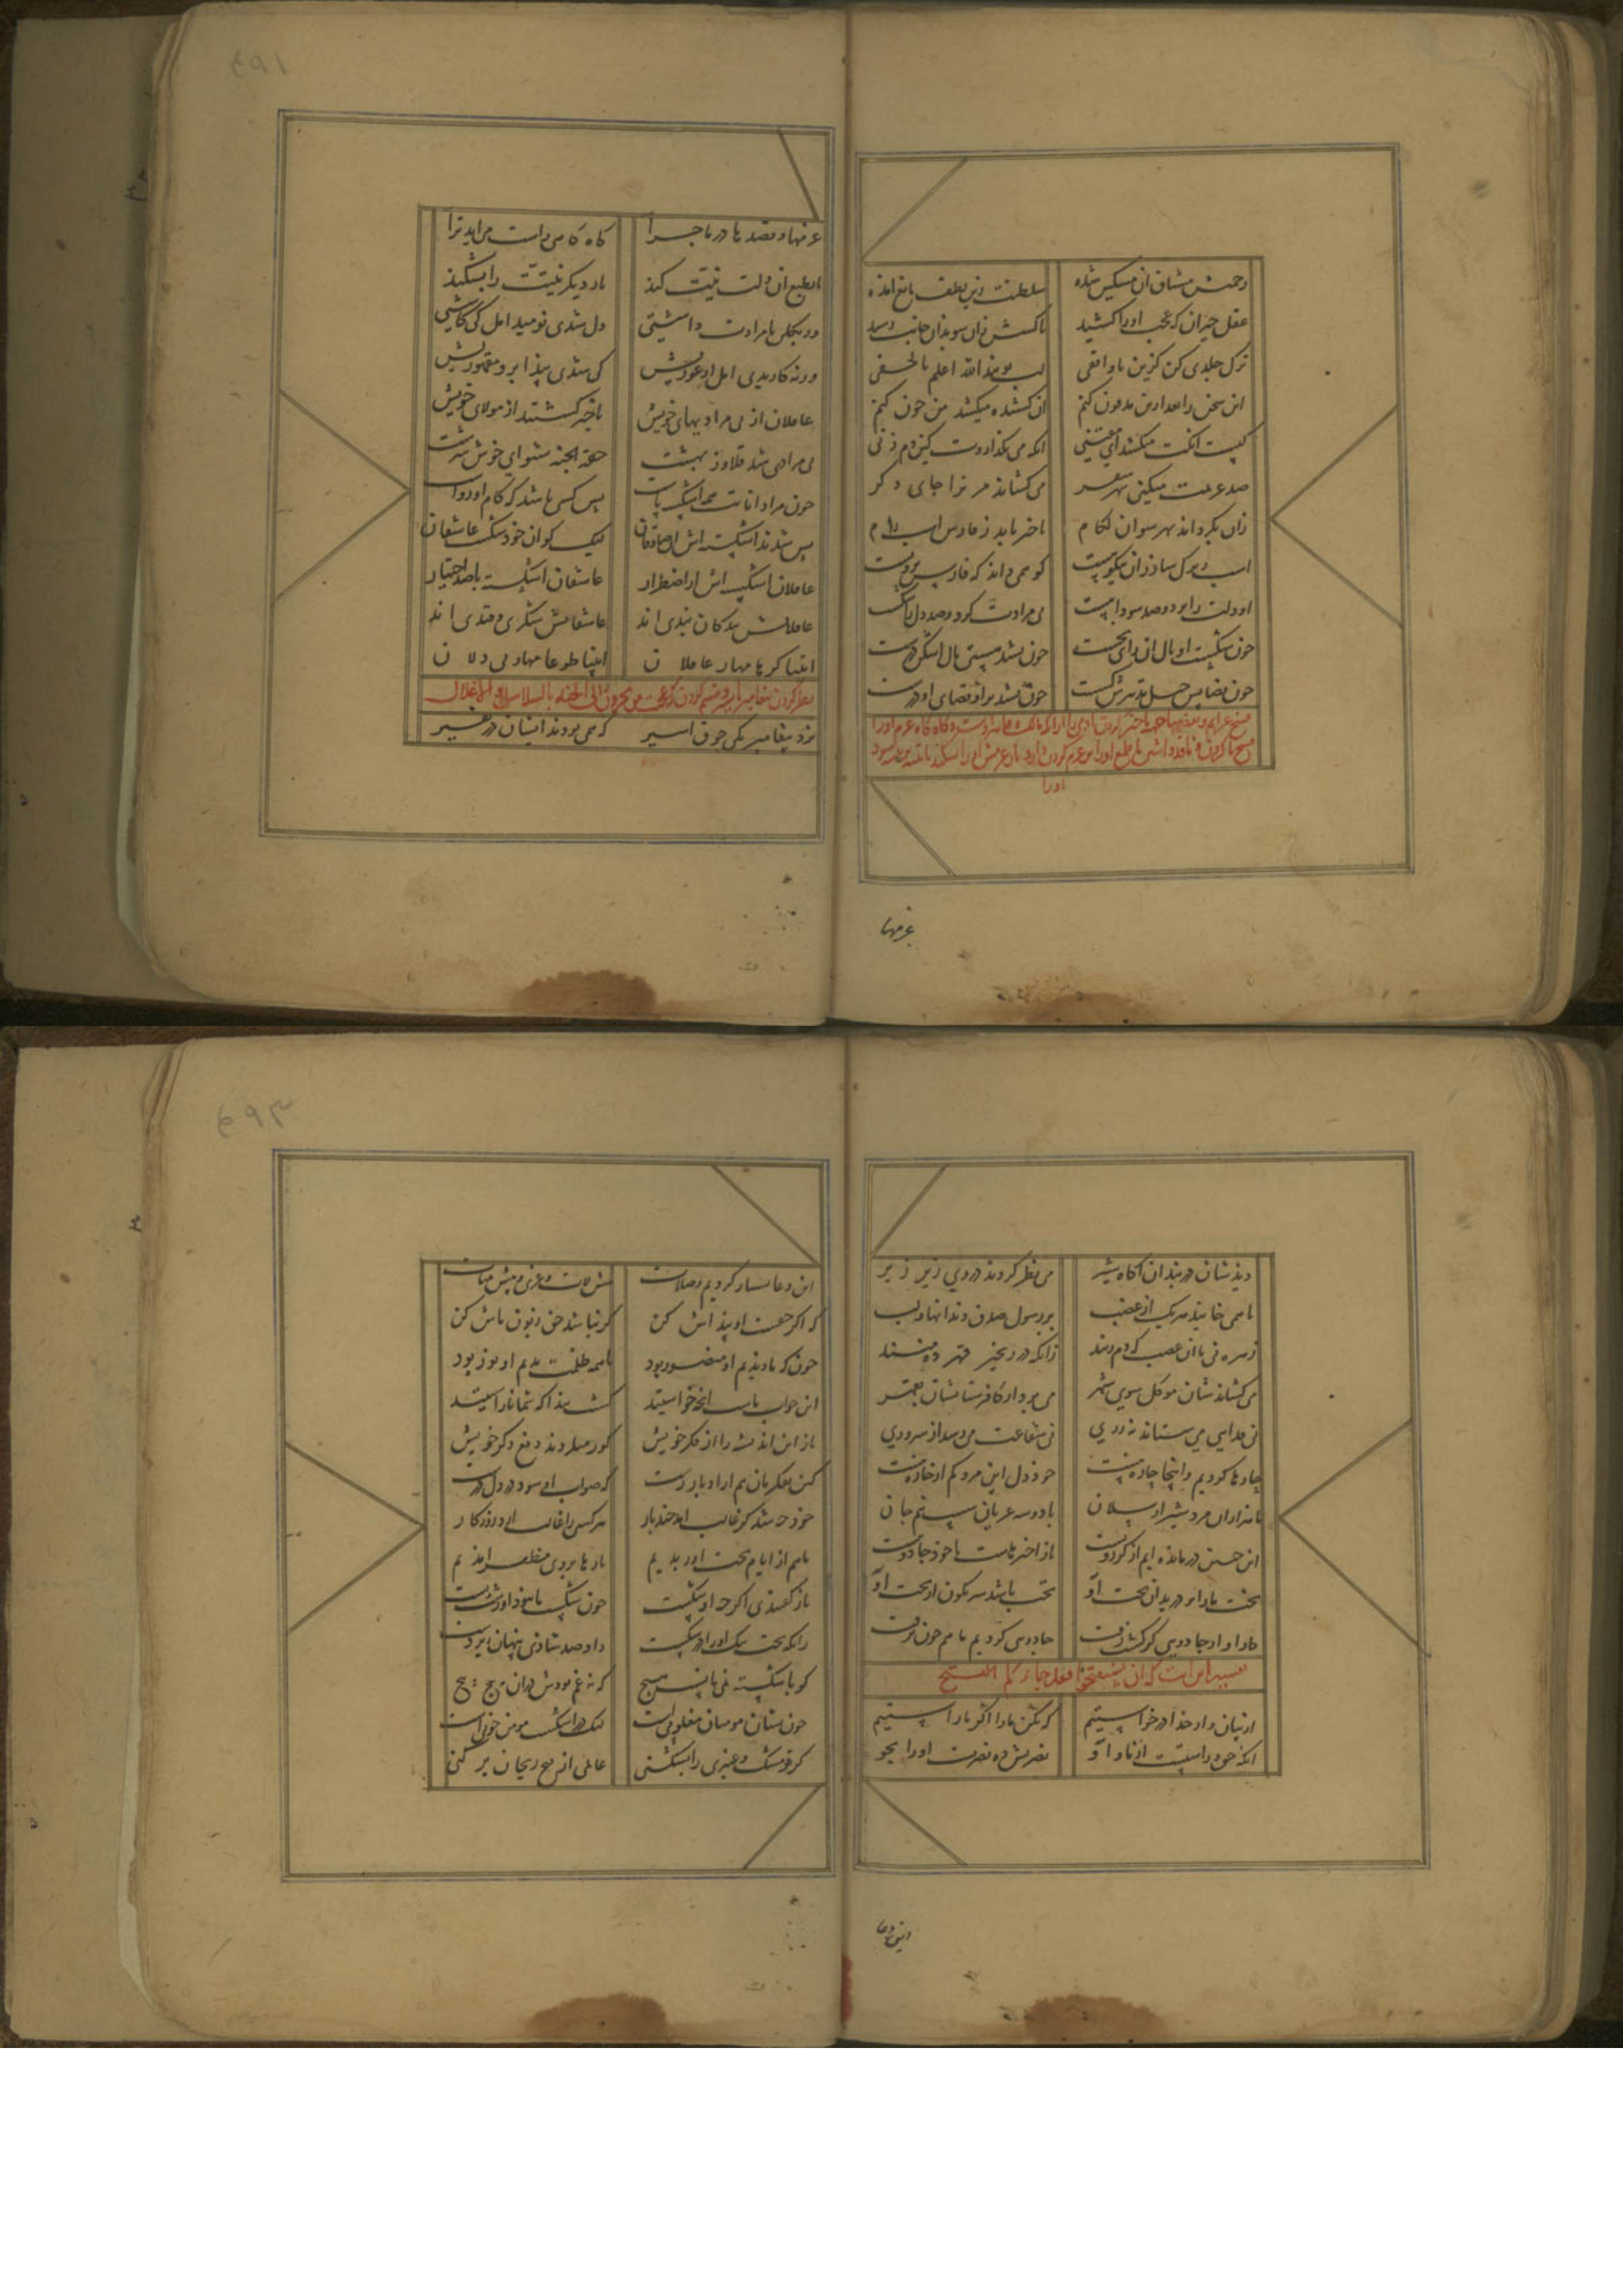 رحمتش مشتاق آن مسکین شده سلطنت زین لطف مانع آمده
عقل حیران که عجب او را کشید یا کشش زان سو بدان جانب رسید
ترک جلدی کن کزین ناواقفی لب ببند الله اعلم بالخفی
این سخن را بعد ازین مدفون کنم آن کشنده میکشد من چون کنم
کیست آنکت میکشد ای معتنی آنکه می نگذاردت کین دم زنی
صد عزیمت میکنی بهر سفر می کشاند مر ترا جای دگر
زان بگرداند بهر سو آن لگام تا خبر یابد ز فارس اسب خام
اسب زیرک سار زان نیکو پیست کو همی داند که فارس بر ویست
او دلت را بر دو صد سودا ببست بی مرادت کرد و صد دل را شکست
چون شکست او بال آن رای نخست چون نشد هستی بال اشکن درست
چون قضایش حبل تدبیرش گسست چون نشد بر تو قضای او درست
اورا
عزمها
عزمها و قصدها در ماجرا گاه گاهی راست می آید ترا
تا بطمع آن دلت نیت کند بار دیگر نیتت را بشکند
ور بکلی نامرادت داشتی دل شدی نومید امل کی کاشتی
ور نه کاریدی امل از عوریش کی شدی پیدا برو مقهوریش
عاملان از بی مرادیهای خویش باخبر گشتند از مولای خویش
بی مرادی شد قلاوز بهشت حفت الجنه شنو ای خوش سرشت
چون مراداتت همه اشکسته پاست پس کسی باشد که کام او رواست
پس شدند اشکسته اش آن صادقان لیک کو آن خود شکست عاشقان
عاملان اشکسته اش از اضطرار عاشقان اشکسته با صد اختیار
عاملانش بندگان بندی اند عاشقانش شکری و قندی اند
ائتیا کرها مهار عاملان ائتیا طوعا مهار بی دلان
نزد پیغامبر یکی جوق اسیر که همی بردند ایشان در نفیر
۶۹۳
دیدشان در بند آن آگاه شیر می نظر کردند در وی زیر زیر
تا همی خایید هر یک از غضب بر رسول صدق دندانها و لب
زهره نی با آن غضب که دم زنند زانکه در زنجیر قهر ده منند
می کشاندشان موکل سوی شهر می برد از کافرستانشان بقهر
نی فدایی می ستاند نه زری نی شفاعت می رسد از سروری
چارها کردیم و اینجا چاره نیست خود دل این مرد کم از خاره نیست
با هزاران مرد شیر ارسلان با دو سه عریان سست نیم جان
این چنین درمانده ایم از کژ رویست یا ز اخترهاست یا خود جادویست
بخت ما را بر درید آن بخت او تخت ما شد سرنگون از تخت او
کار او از جادوی گر گشت زفت جادوی کردیم ما هم چون نرفت
تفسیر این آیت که ان تستفتحوا فقد جاءکم الفتح
از بتان و از خدا در خواستیم که بکن ما را اگر ناراستیم
آنکه حق و راستست از ما و او نصرتش ده نصرت او را بجو
این دعا
این دعا بسیار کردیم و صلات پیش لات و عزی و پیش منات
که اگر حقست او پیداش کن گر نباشد حق زبون ماش کن
چونکه وا دیدیم او منصور بود ما همه ظلمت بدیم او نور بود
این جواب ماست کانچه خواستید گشت پیدا که شما ناراستید
باز این اندیشه را از فکر خویش کور میکردند و دفع ذکر خویش
کین تفکرمان هم از ادبار رست که صواب او شود در دل درست
خود چه شد گر غالب آمد چند بار هر کسی را غالب آرد روزگار
ما هم از ایام بخت آور بدیم بارها بر وی مظفر آمدیم
باز گفتندی که گرچه او شکست چون شکست ما نبود آن زشت و پست
زانکه بخت نیک او را در شکست داد صد شادی پنهان زیردست
کو باشکسته نمی مانست هیچ که نه غم بودش در آن نه پیچ پیچ
چون نشان مومنان مغلوبی است لیک در اشکست مومن خوبی است
گر تو مشک و عنبری را بشکنی عالمی از فوح ریحان پر کنی